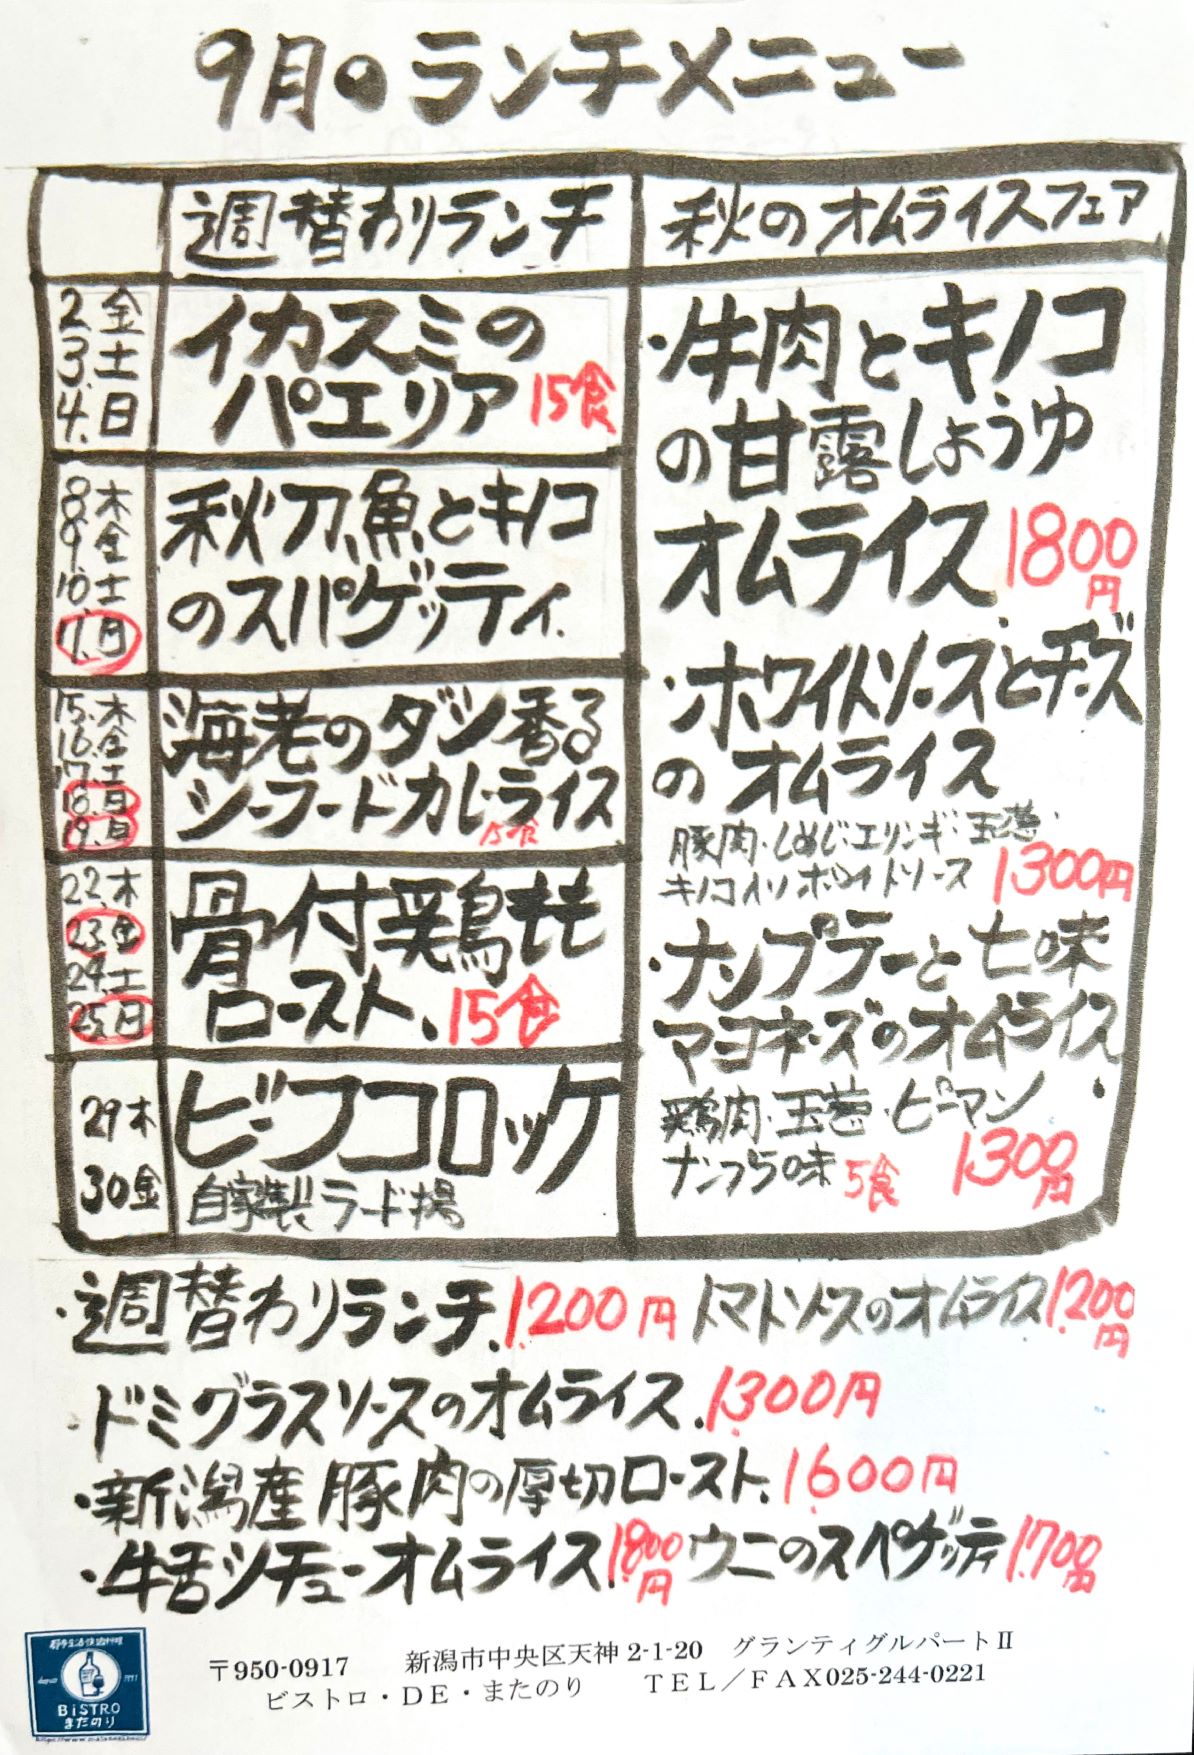 9月のランチメニュー
週替わりランチ
秋のオムライスフェア
2 金
3 土
4. 日
イカスミの
パエリア 15食
8 木
9 金
10. 土
11. 日
秋刀魚とキノコ
のスパゲッティ.
15. 木
16. 金
17. 土
18. 日
19. 月
海老のダシ香る
シーフードカレーライス
15食
22. 木
23. 金
24. 土
25. 日
骨付鶏もも
ロースト、15食
29 木
30 金
ビーフコロッケ
自家製ラード揚
・牛肉とキノコ
の甘露しょうゆ
オムライス 1800
円
・ホワイトソースとチーズ
のオムライス
豚肉・しめじ・エリンギ・玉葱・
キノコイリホワイトソース 1300円
・ナンプラーと七味
マヨネーズのオムライス
鶏肉・玉葱・ピーマン
ナンプラ味 5食 1300
円
・週替わりランチ.1200円 トマトソースのオムライス1200
円
・ドミグラスソースのオムライス.1300円
・新潟産豚肉の厚切ロースト.1600円
・牛舌シチューオムライス1800円 ウニのスペゲッティ1700円
都市生活快適料理
depuis 1991
BiSTRO
またのり
〒950-0917 新潟市中央区天神 2-1-20 グランティグルパートⅡ
ビストロ・DE・またのり TEL/FAX025-244-0221